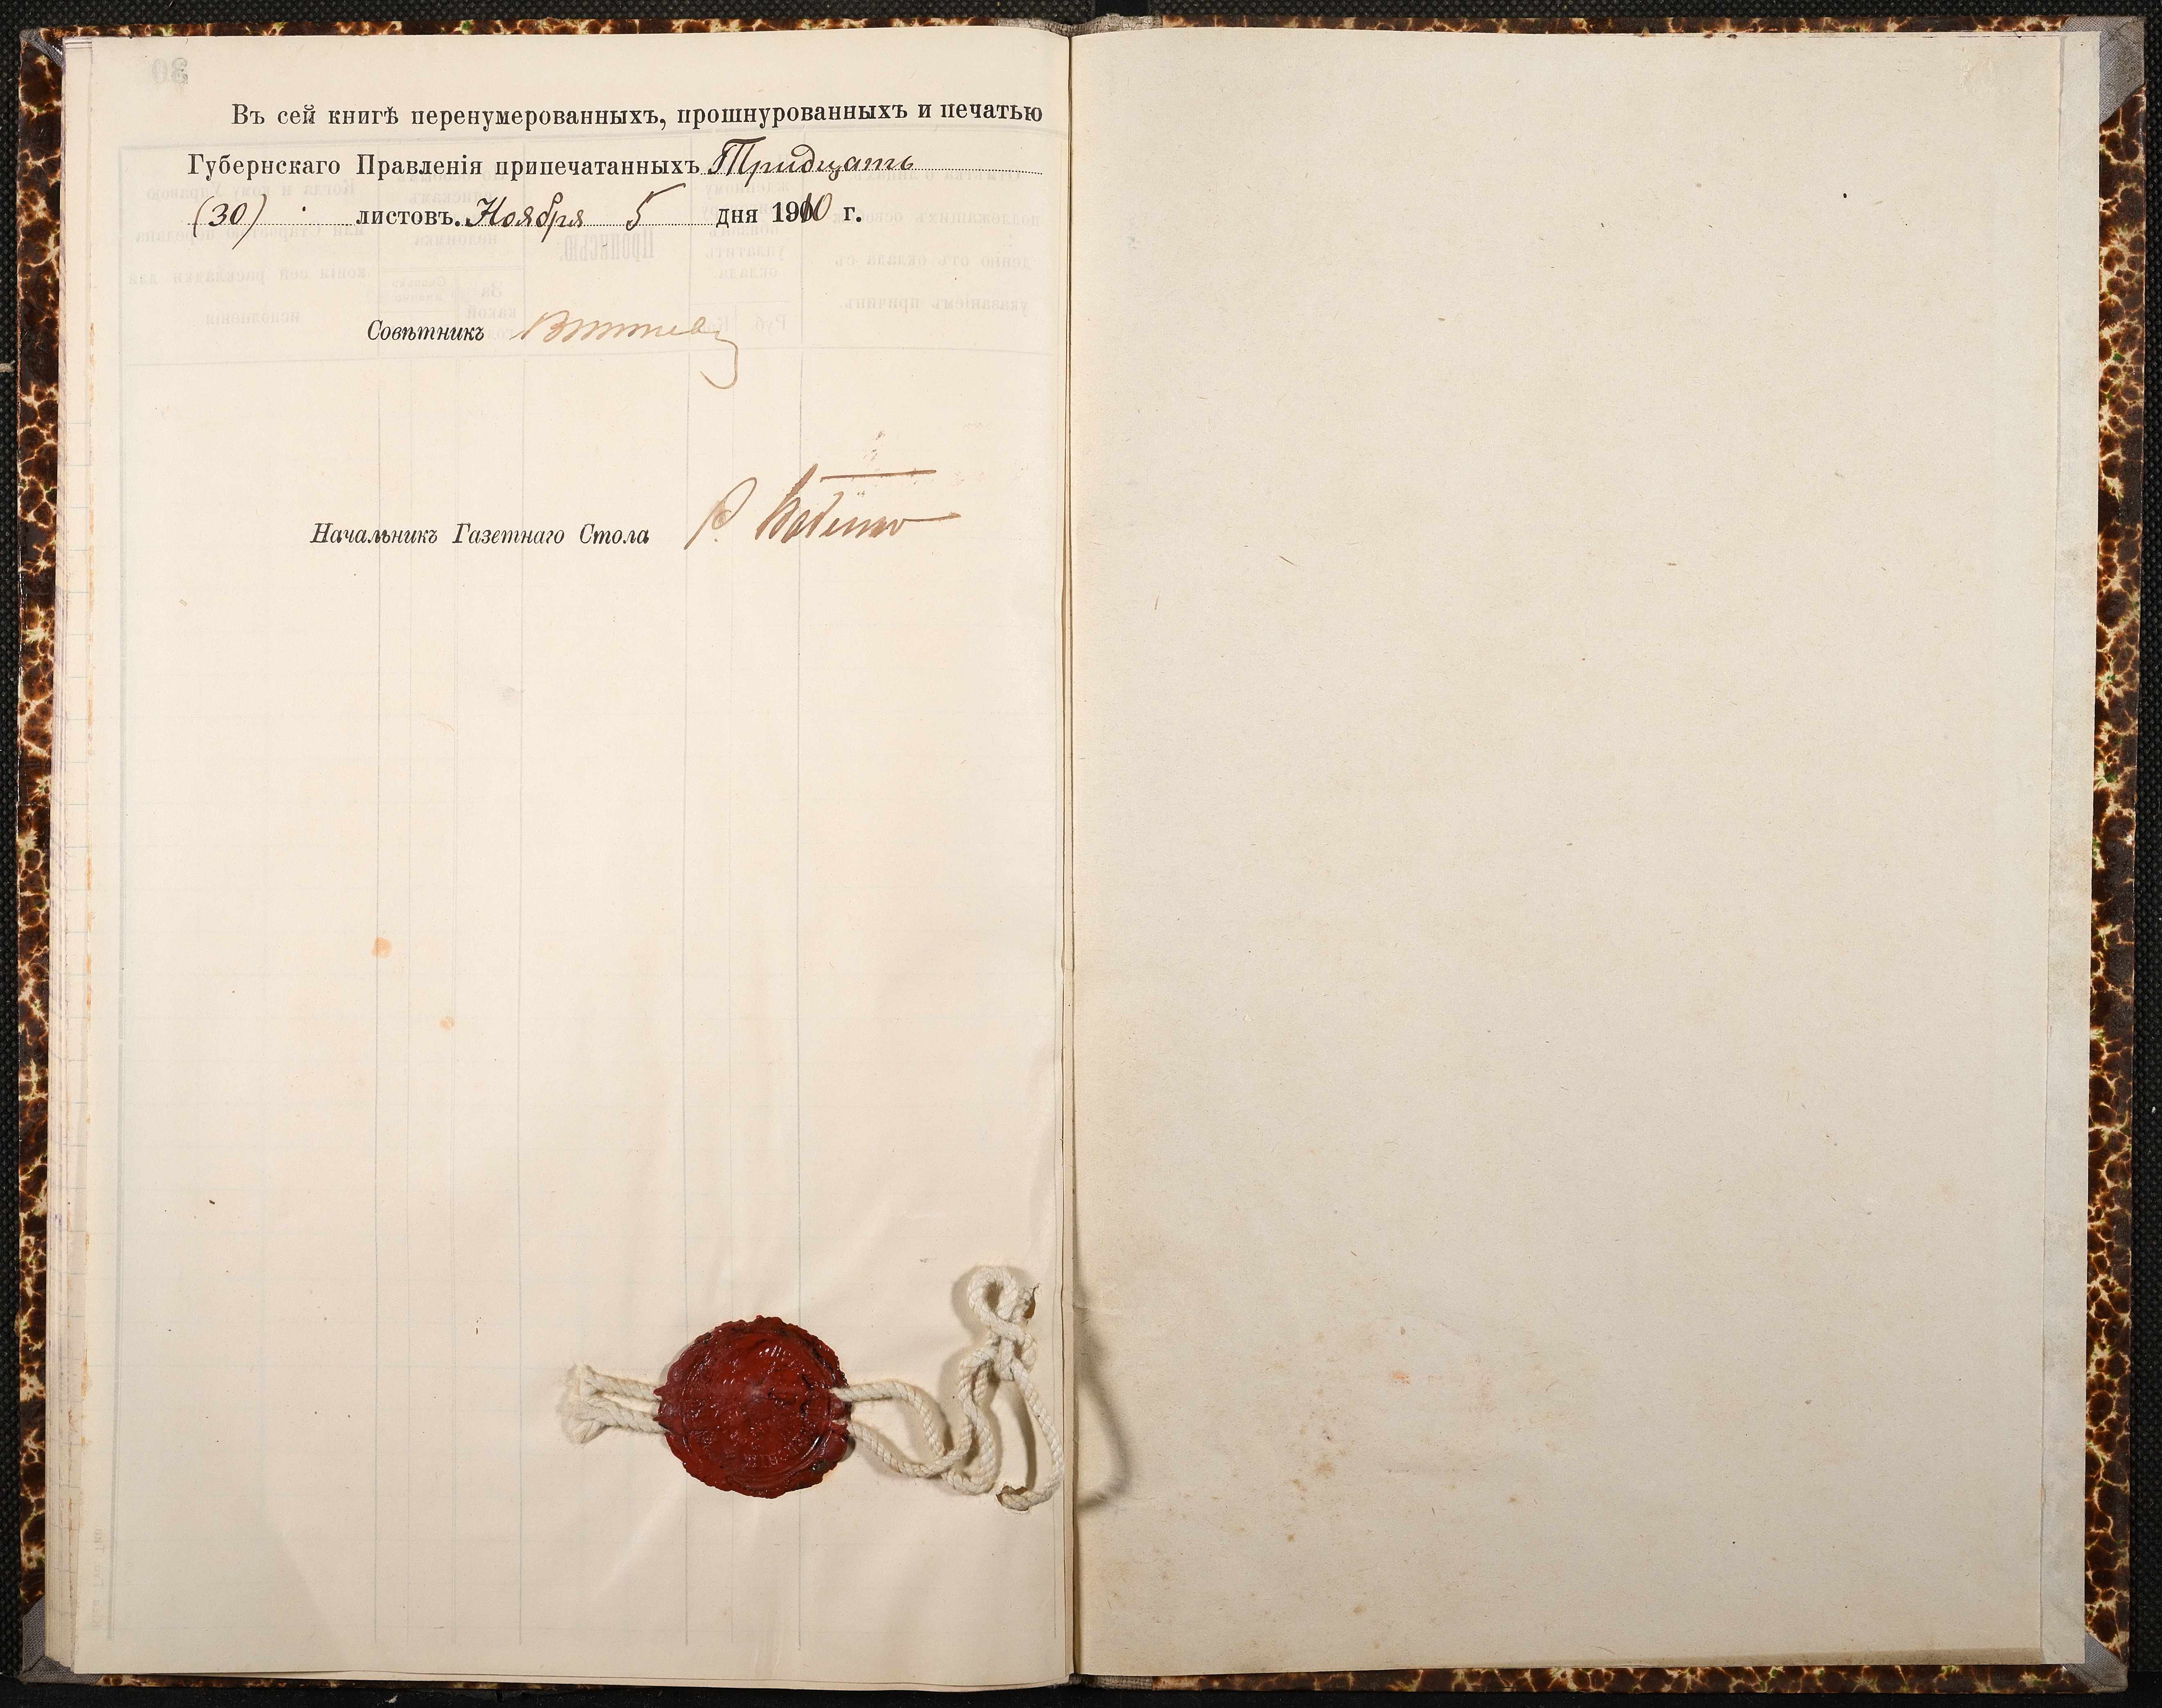 Въ сей книгѣ перенумерованныхъ, прошнурованныхъ и печатью
Губернскаго Правленія припечатанныхъ Тридцать
(30) листовъ. Ноября 5 дня 1910 г.
Совѣтникъ
Начальникъ Газетнаго Стола